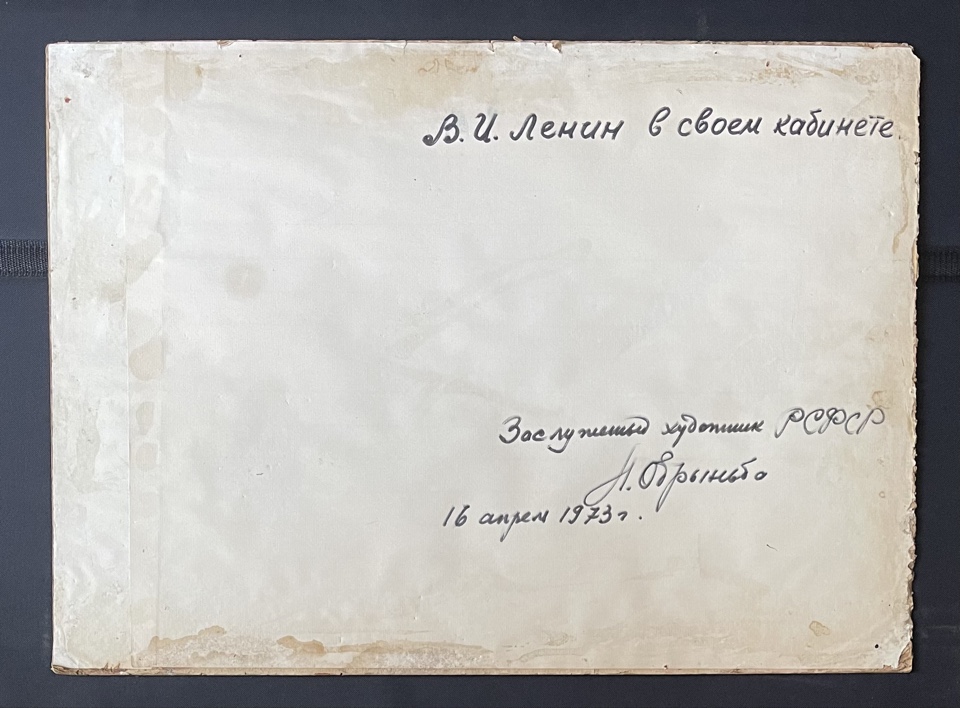 В. И. Ленин в своем кабинете.
Заслуженный художник РСФСР
Н. Обрыньба
16 апреля 1973 г.